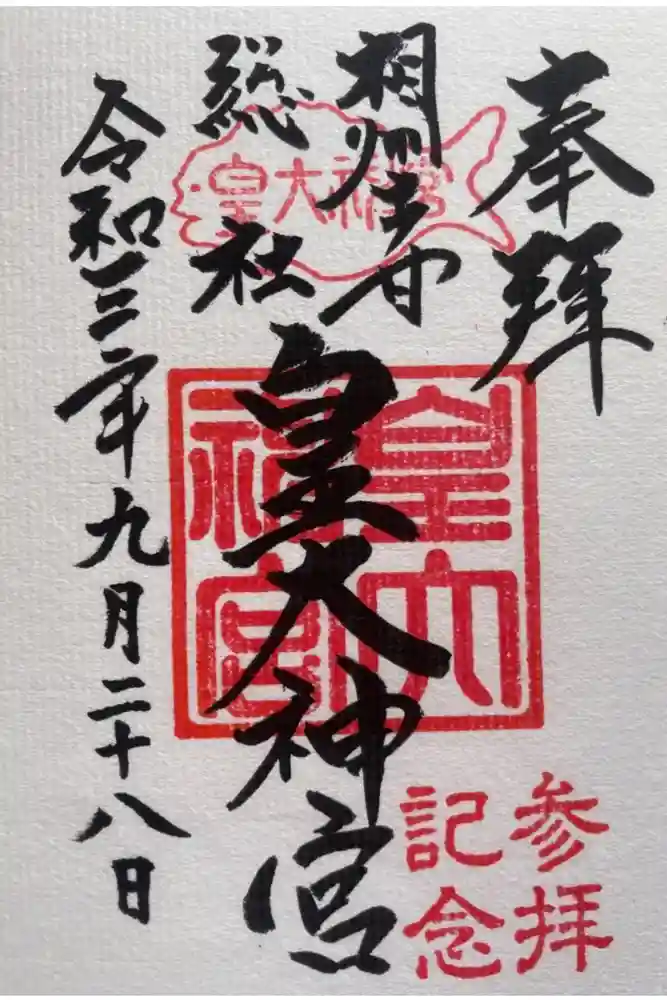 奉拝
相州土甘
総社
皇大神宮
皇大神宮
皇大
神宮
令和三年九月二十八日
参拝
記念